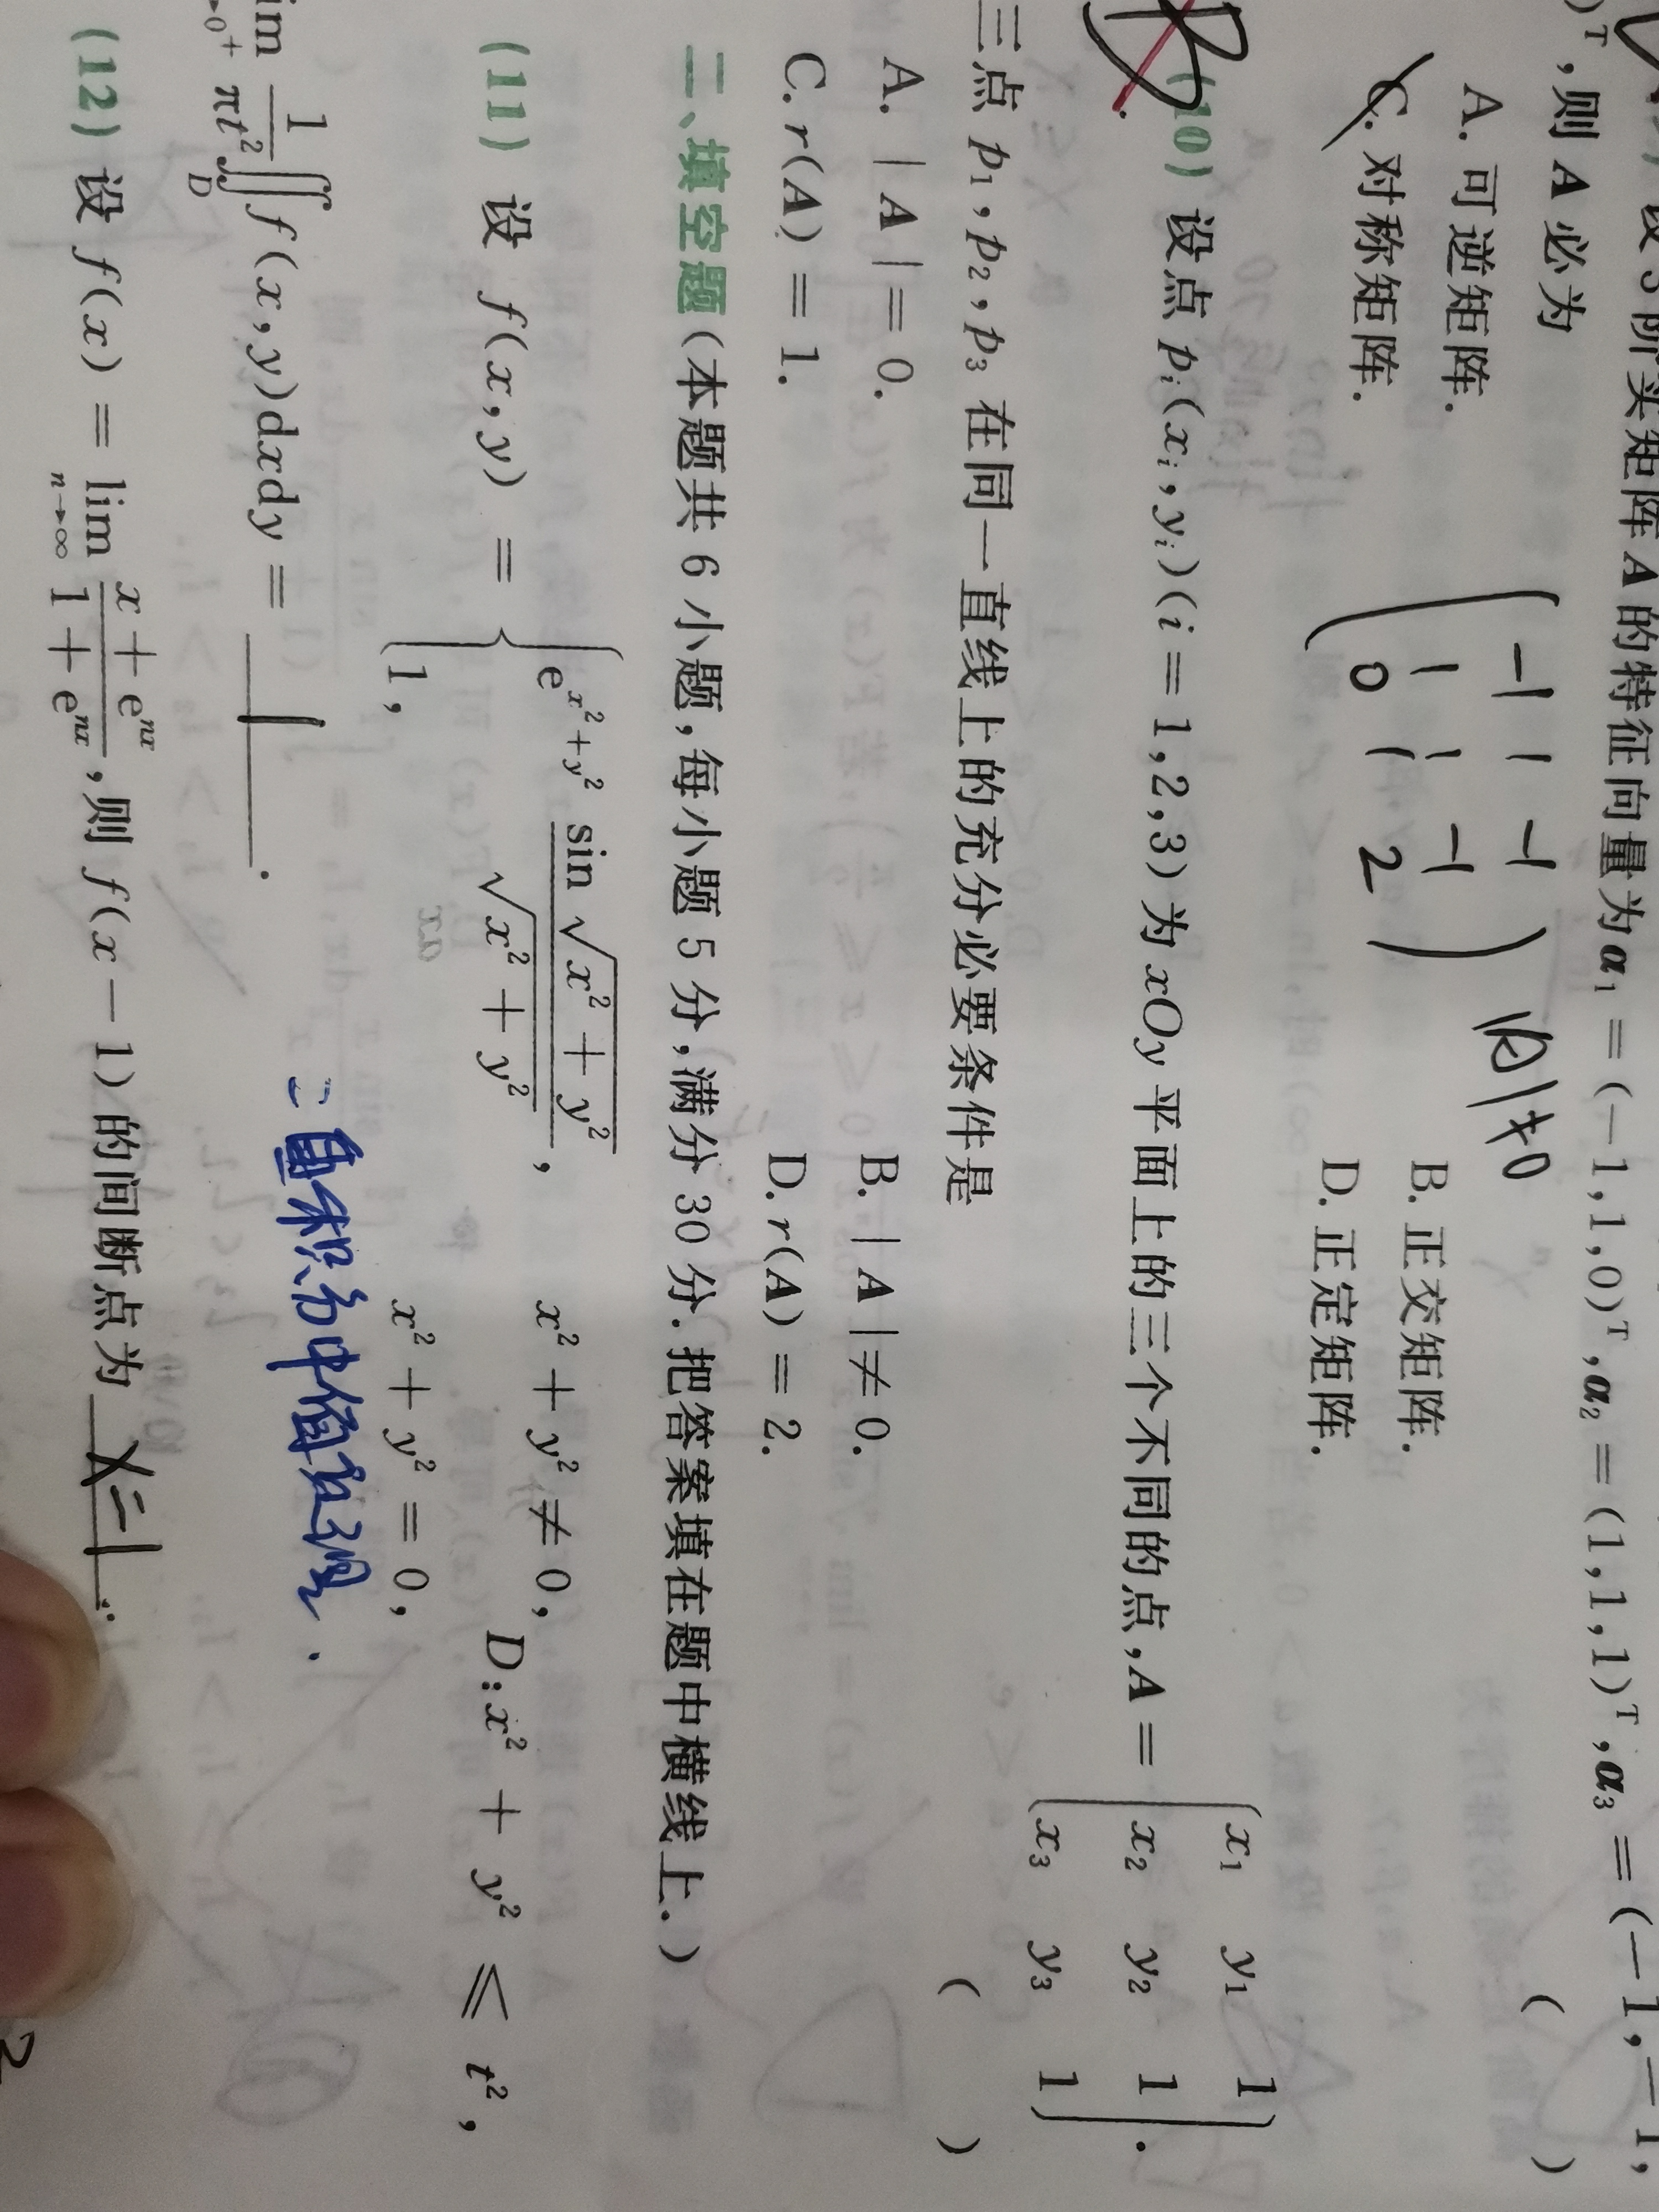 设 3 阶实矩阵 A 的特征向量为 α₁ = (−1,1,0)ᵀ,α₂ = (1,1,1)ᵀ,α₃ = (−1,−1,
)ᵀ,则 A 必为 ( )
A. 可逆矩阵. B. 正交矩阵.
C. 对称矩阵. D. 正定矩阵.
−1 1 −1
1 1 −1
0 1 2
≠0
(10) 设点 pᵢ(xᵢ,yᵢ)(i = 1,2,3) 为 xOy 平面上的三个不同的点,A = (x₁ y₁ 1
x₂ y₂ 1
x₃ y₃ 1).
B
三点 p₁,p₂,p₃ 在同一直线上的充分必要条件是 ( )
A. | A | = 0. B. | A | ≠ 0.
C. r(A) = 1. D. r(A) = 2.
二、填空题(本题共 6 小题,每小题 5 分,满分 30 分.把答案填在题中横线上.)
(11) 设 f(x,y) = { e^(x²+y²) sin√(x² + y²) / √(x² + y²), x² + y² ≠ 0,
1, x² + y² = 0,
D:x² + y² ≤ t²,
lim →0⁺ 1/(πt²) ∬_D f(x,y)dxdy = 1 .
二重积分中值定理.
(12) 设 f(x) = lim n→∞ (x + eⁿˣ)/(1 + eⁿˣ),则 f(x − 1) 的间断点为 x=1 .
2